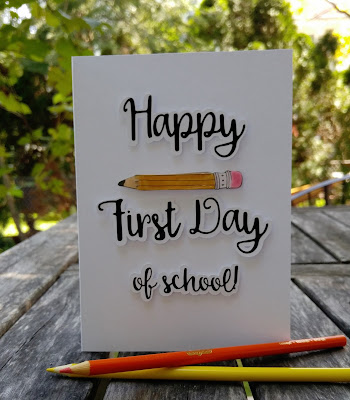 Happy
First Day
of school!